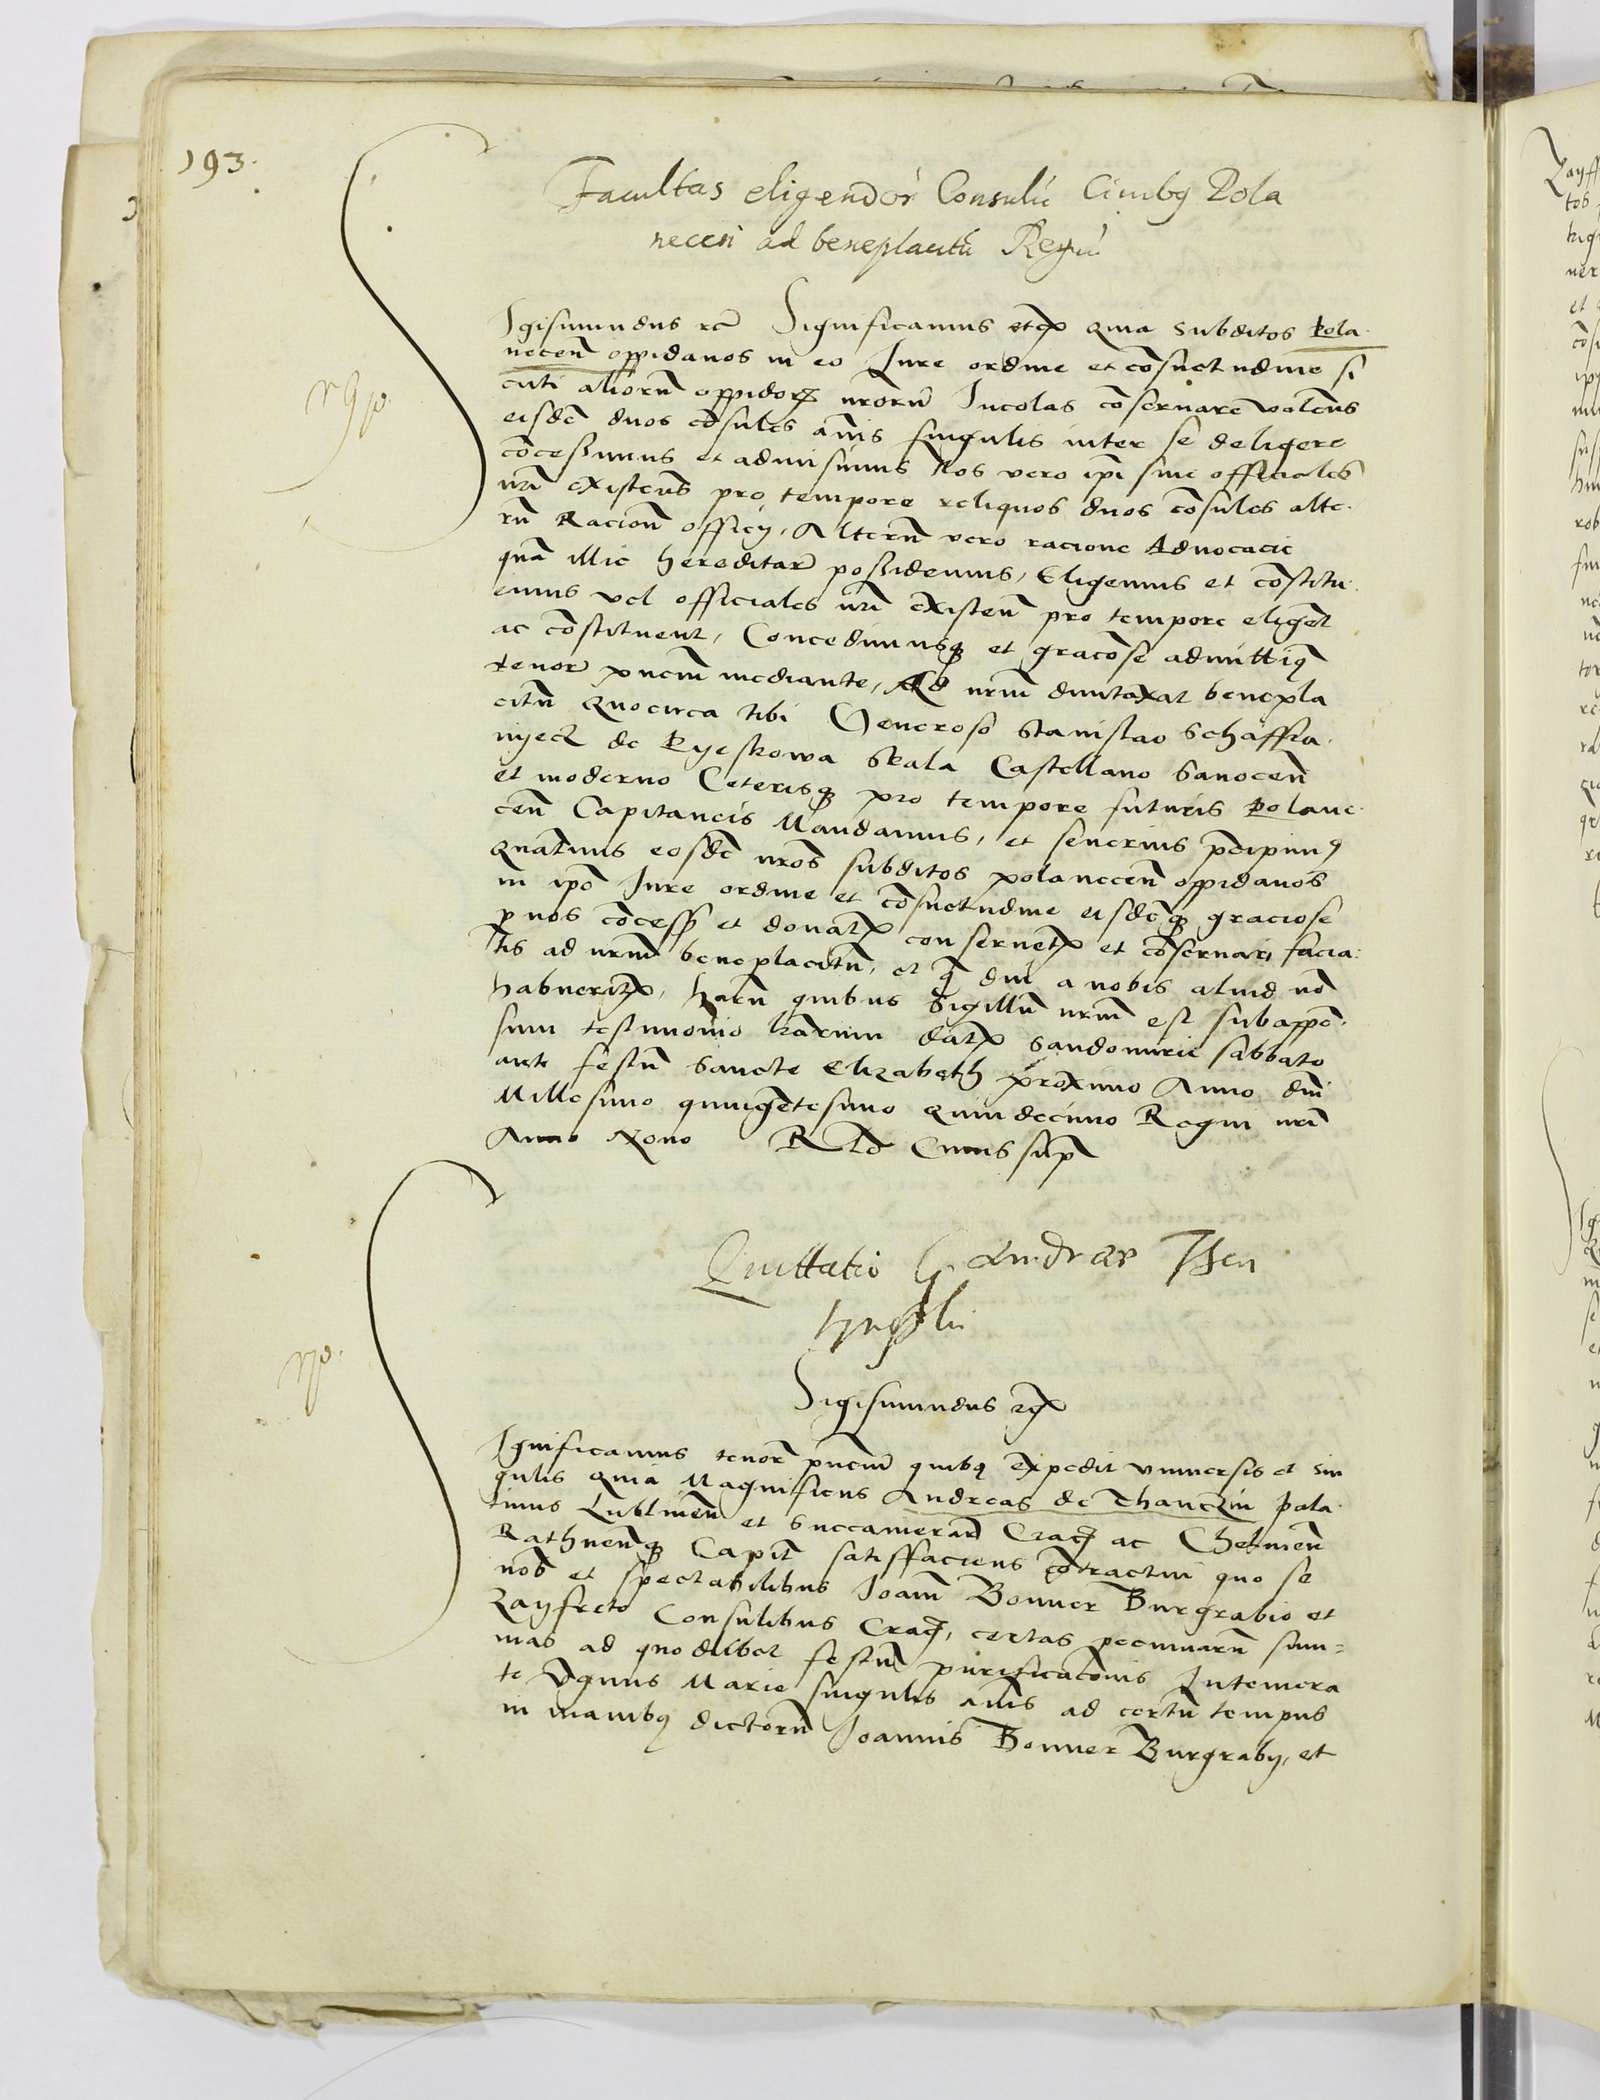 193.
Facultas eligendor Consulu Civibq Pola
necen ad beneplacitu Regiu
Igismundus rc Significamus etc Quia Subditos Pola
necen oppidanos in eo Iure ordine et cosuetudine si
cuti alioru oppidor nroru Incolas coservare volens
eisde duos cosules anis singulis inter se deligere
cocessimus et admisimus Nos vero ipi sive officiales
nri existens pro tempore reliquos duos cosules alte
ru Racion officij, Alteru vero racione Advocacie
qua illic hereditar possidemus, Eligemus et costitu
emus vel officiales nri existen pro tempore eliget
ac costituent, Concedimusq et graciose admittiq
tenor pncium mediante, Ad nrum duntaxat benepla
citu Quocirca tibi Generoso Stanislao Schaffra
nyecz de Pyeskowa Skala Castellano Sanocen
et moderno Ceterisq pro tempore futuris Polane
cen Capitaneis Mandamus, et severius pcipimq
Quatinus eosde nros subditos polanecen oppidanos
in ipo Iure ordine et cosuetudine eisdeq graciose
p nos cocess et donat conservet et coservari facia
tis ad nrum beneplacitu, et q diu a nobis aliud no
habuerit, haru quibus Sigillu nrum est subappe
sum testimonio lrarum dat Sandomirie sabbato
ante festu Sancte Elizabeth proximo Anno dni
Millesimo quingetesimo Quindecimo Regni nri
Anno Nono Rlo Cuius sup
Quittatio G Andree Then
czynskii
Sigismundus etc
Ignificamus tenor pncium quibq expedit universis et sin
gulis Quia Magnificus Andreas de Thanczin pala
tinus Lublinen et Succamerari Crac ac Chelmen
Rathnenq Capit satisffaciens cotractui quo se
nob et spectabilibus Ioann Bonner Burgrabio et
Zayfreto Consulibus Crac, certas pecuniaru sum=
mas ad quodlibet festum purificacionis Intemera
te Virginis Marie singulis anis ad certu tempus
in manibq dictoru Ioannis Bonner Burgrabij, et